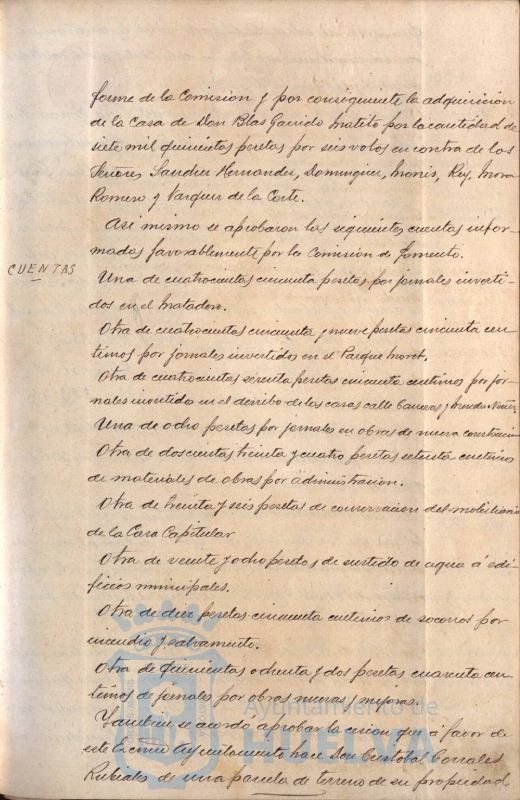 forme de la Comision y por consiguiente la adquisicion
de la Casa de Don Blas Garrido Matito por la cantidad de
siete mil quinientas pesetas por seis votos en contra de los
Señores Sanchez Hernandez, Dominguez, Monis, Rey, Mora
Romero y Vazquez de la Corte.
Asi mismo se aprobaron las siguientes cuentas infor-
madas favorablemente por la Comision de Fomento.
CUENTAS
Una de cuatrocientas cincuenta pesetas por jornales inverti-
dos en el Matadero.
Otra de cuatrocientas cincuenta y nueve pesetas cincuenta cen-
timos por jornales invertidos en el Parque Moret.
Otra de cuatrocientas sesenta pesetas cincuenta centimos por jor-
nales invertidos en el derribo de las casas calle Canovas y Mendez Nuñez
Una de ocho pesetas por jornales en obras de nueva construccion
Otra de doscientas treinta y cuatro pesetas setenta centimos
de materiales de obras por administracion.
Otra de treinta y seis pesetas de conservacion del mobiliario
de la Casa Capitular
Otra de veinte y ocho pesetas de surtido de agua á edi-
ficios municipales.
Otra de diez pesetas cincuenta centimos de socorros por
incendio y salvamento.
Otra de quinientas ochenta y dos pesetas cuarenta cen-
timos de jornales por obras nuevas y mejoras.
Tambien se acordó aprobar la cesion que á favor de
este Excmo Ayuntamiento hace Don Cristobal Corrales
Rubiales de una parcela de terreno de su propiedad
Ayuntamiento de
HUELVA